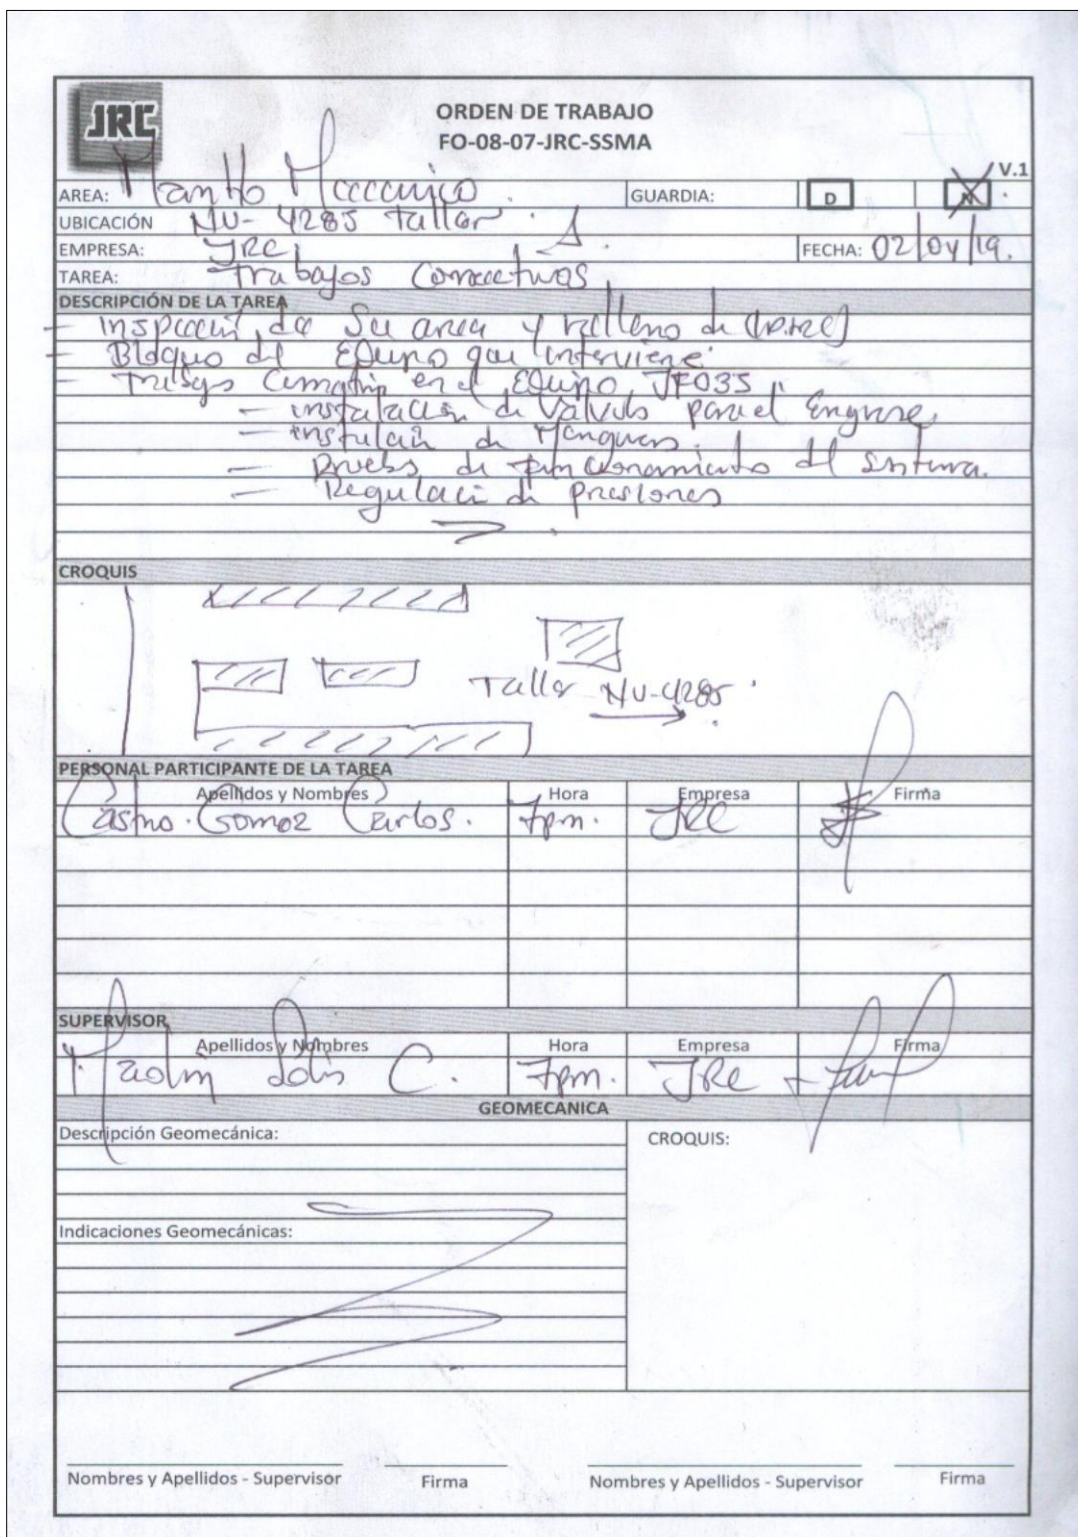 JRC
ORDEN DE TRABAJO
FO-08-07-JRC-SSMA
V.1
AREA: Mantto Mecanico. GUARDIA: D N
UBICACIÓN NV-4285 Taller.
EMPRESA: JRC. FECHA: 02/04/19.
TAREA: Trabajos Correctivos
DESCRIPCIÓN DE LA TAREA
- Inspección de Su area y relleno de
- Bloqueo del Equipo que interviene.
- en el Equipo
- instalación de Valvula para el Engrase,
- instalación de Mangueras.
- Prueba de funcionamiento del sistema.
- Regulación de presiones
CROQUIS
Taller NV-4285.
PERSONAL PARTICIPANTE DE LA TAREA
Apellidos y Nombres Hora Empresa Firma
Castro. Gomez Carlos. 7pm. JRC
SUPERVISOR
Apellidos y Nombres Hora Empresa Firma
Solis C. 7pm. JRC
GEOMECANICA
Descripción Geomecánica: CROQUIS:
Indicaciones Geomecánicas:
Nombres y Apellidos - Supervisor Firma Nombres y Apellidos - Supervisor Firma